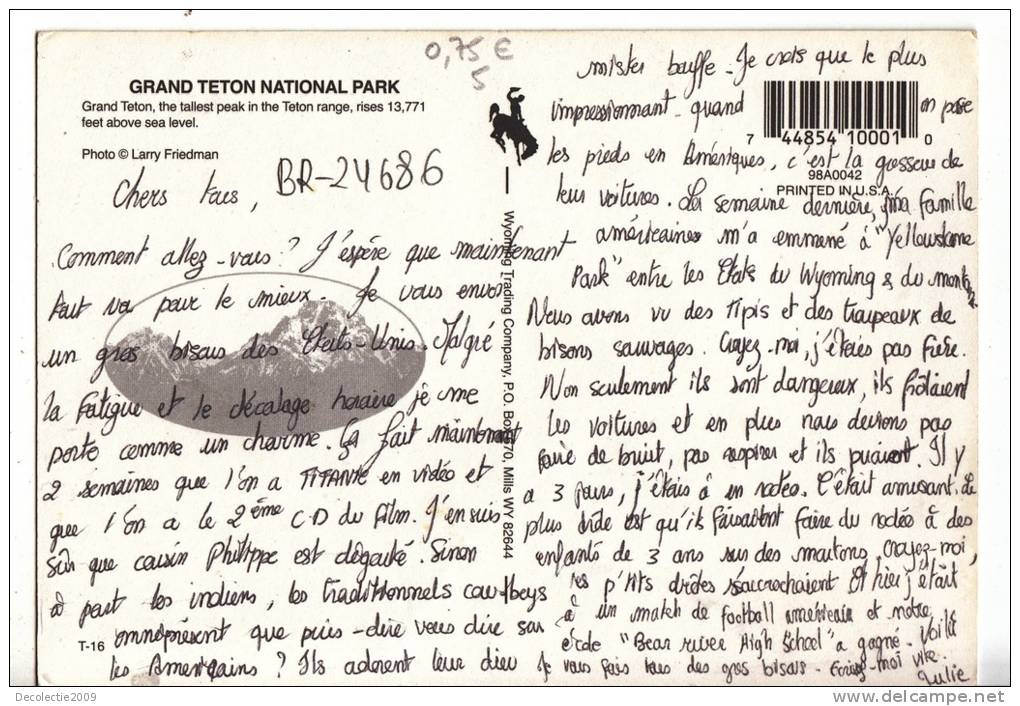 0,75 €
5
GRAND TETON NATIONAL PARK
Grand Teton, the tallest peak in the Teton range, rises 13,771
feet above sea level.
Photo © Larry Friedman
BR-24686
Chers tous,
Comment allez-vous? J'espère que maintenant
tout va pour le mieux. Je vous envoi
un gros bisous des Etats-Unis. Malgré
la fatigue et le décalage horaire je me
porte comme un charme. Ça fait maintenant
2 semaines que l'on a TITANIC en vidéo et
que l'on a le 2ème CD du film. J'en suis
sûr que cousin Philippe est dégouté. Sinon
à part les indiens, les traditionnels cow-boys
omniprésent que puis-dire vous dire sur
les Américains? Ils adorent leur dieu
T-16
Wyoming Trading Company, P.O. Box 670, Mills WY 82644
mister bouffe. Je crois que le plus
impressionnant quand on pose
les pieds en Amériques, c'est la grosseur de
leur voitures. La semaine dernière, ma famille
américaine m'a emmené à "Yellowstone
Park" entre les Etats du Wyoming & du montana.
Nous avons vu des Tipis et des troupeaux de
bisons sauvages. Croyez-moi, j'étais pas fière.
Non seulement ils sont dangereux, ils frôlaient
les voitures et en plus nous devions pas
faire de bruit, pas respirer et ils puaient. Il y
a 3 jours, j'étais à en rodéo. C'était amusant. Le
plus drôle est qu'ils faisaient faire du rodéo à des
enfants de 3 ans sur des moutons. Croyez-moi,
les p'tits drôles s'accrochaient. Et hier j'était
à un match de football américain et notre
école "Bear river High School" a gagné. Voilà
Je vous fais tous des gros bisous. Ecrivez-moi vite.
Julie
7 44854 10001 0
98A0042
PRINTED IN U.S.A.
Decolectie2009
http://www.delcampe.net